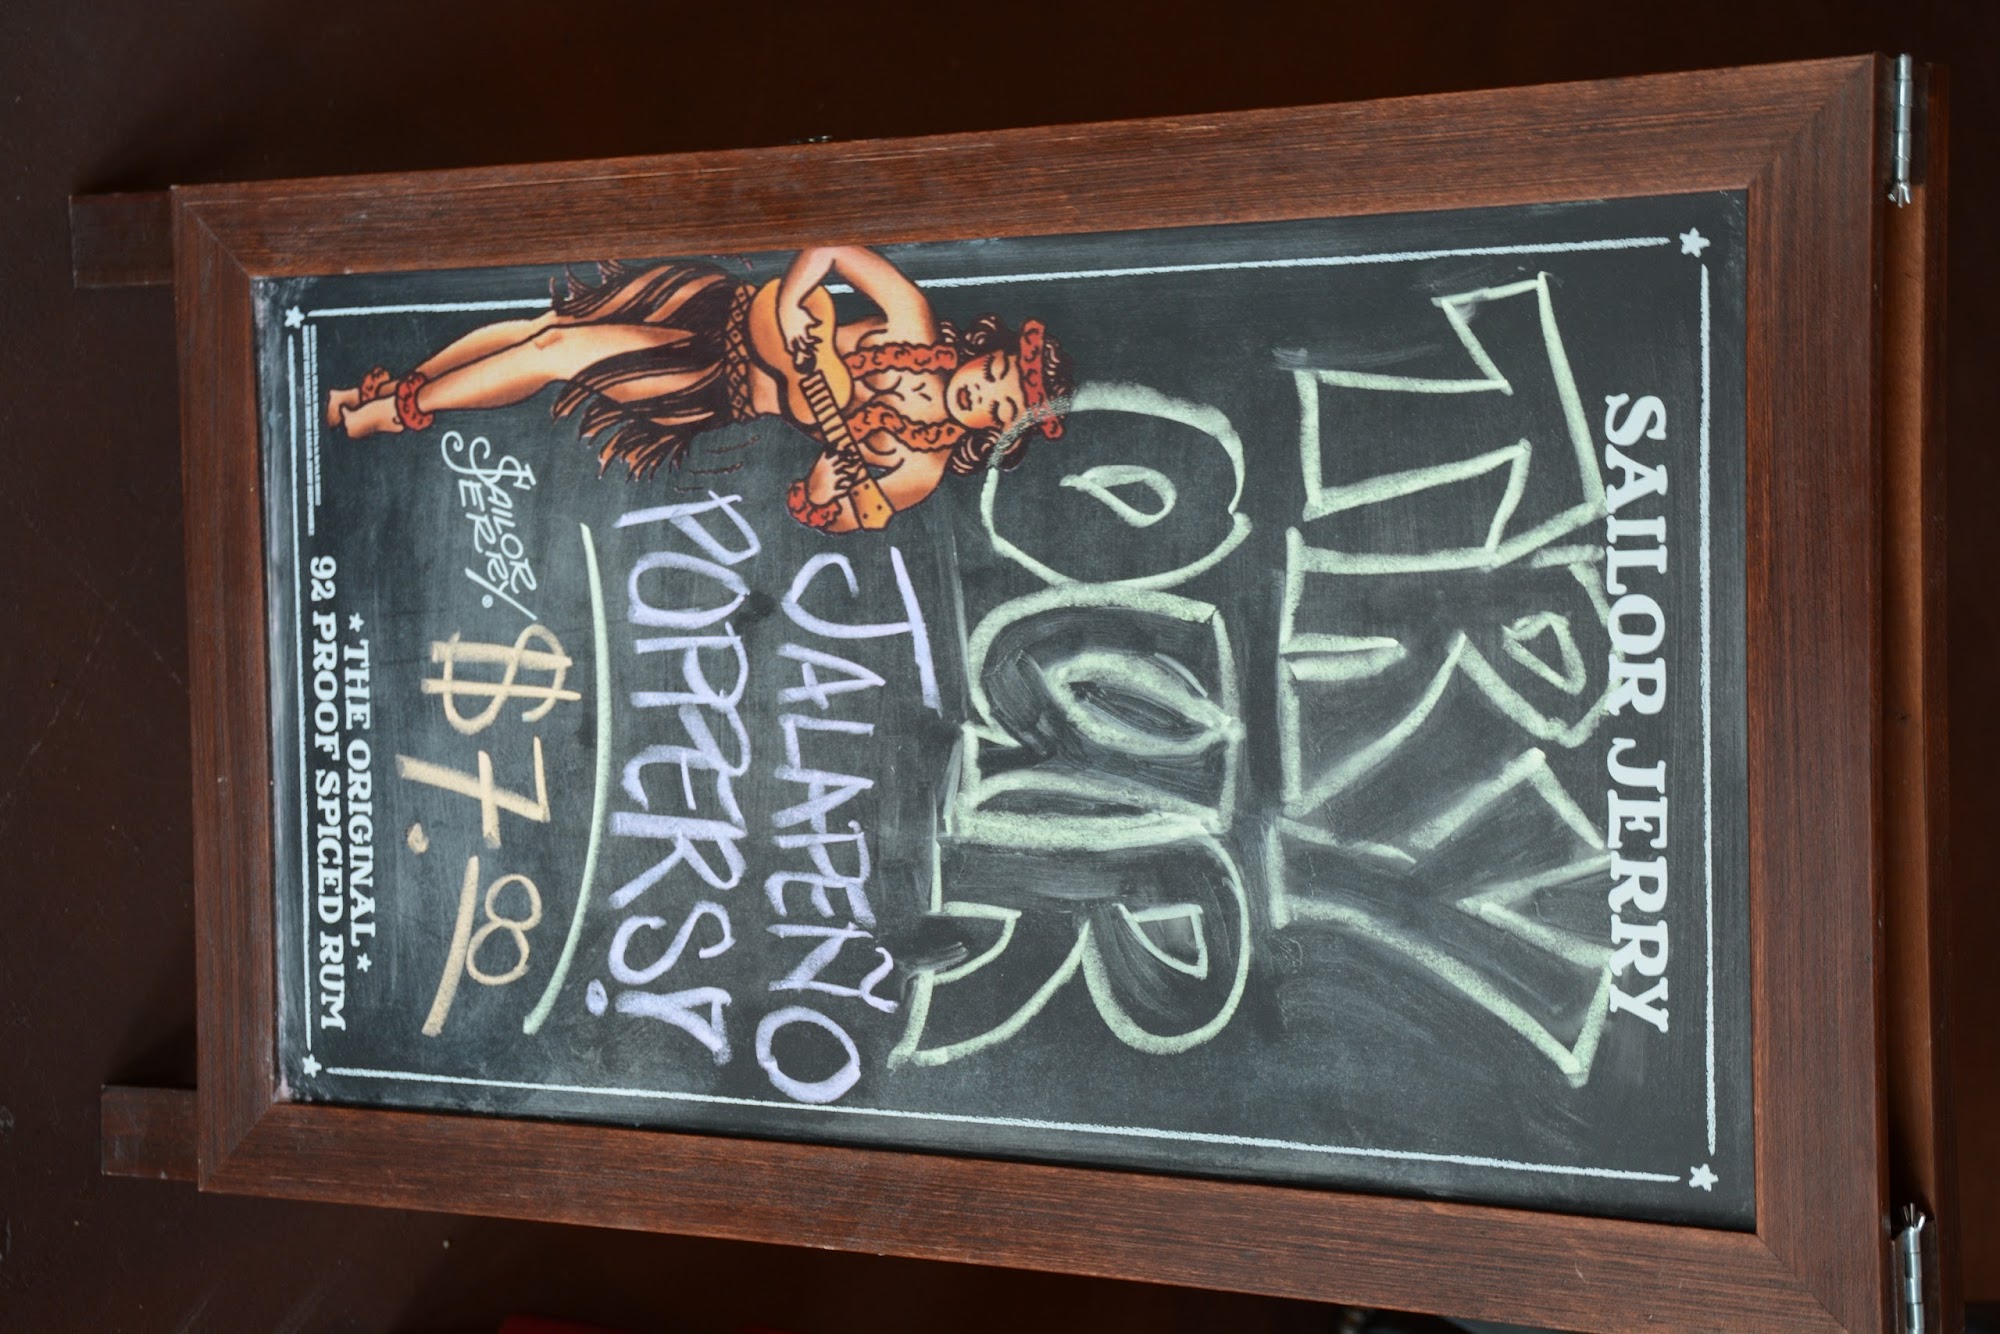 SAILOR JERRY
TRY
OUR
JALAPEÑO
POPPERS!
$7.00
SAILOR
JERRY.
★ THE ORIGINAL ★
92 PROOF SPICED RUM